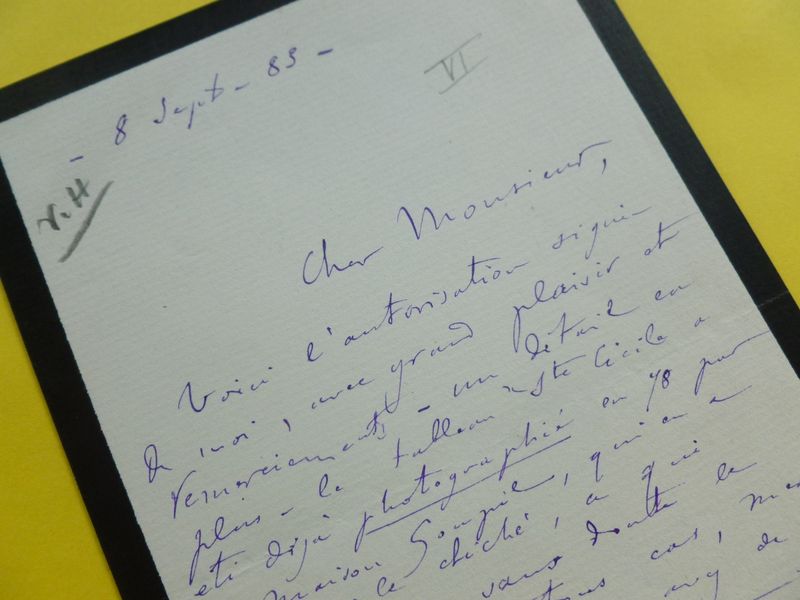 - 8 Sept - 83 -
VI
V. H
Cher Monsieur,
Voici l'autorisation signée
de moi, avec grand plaisir et
remerciements - un détail en
plus - le tableau Ste Cécile a
été déjà photographié en 78 par
maison Goupil, qui en a
le cliché, a qui
sans doute le
cas, mes
de